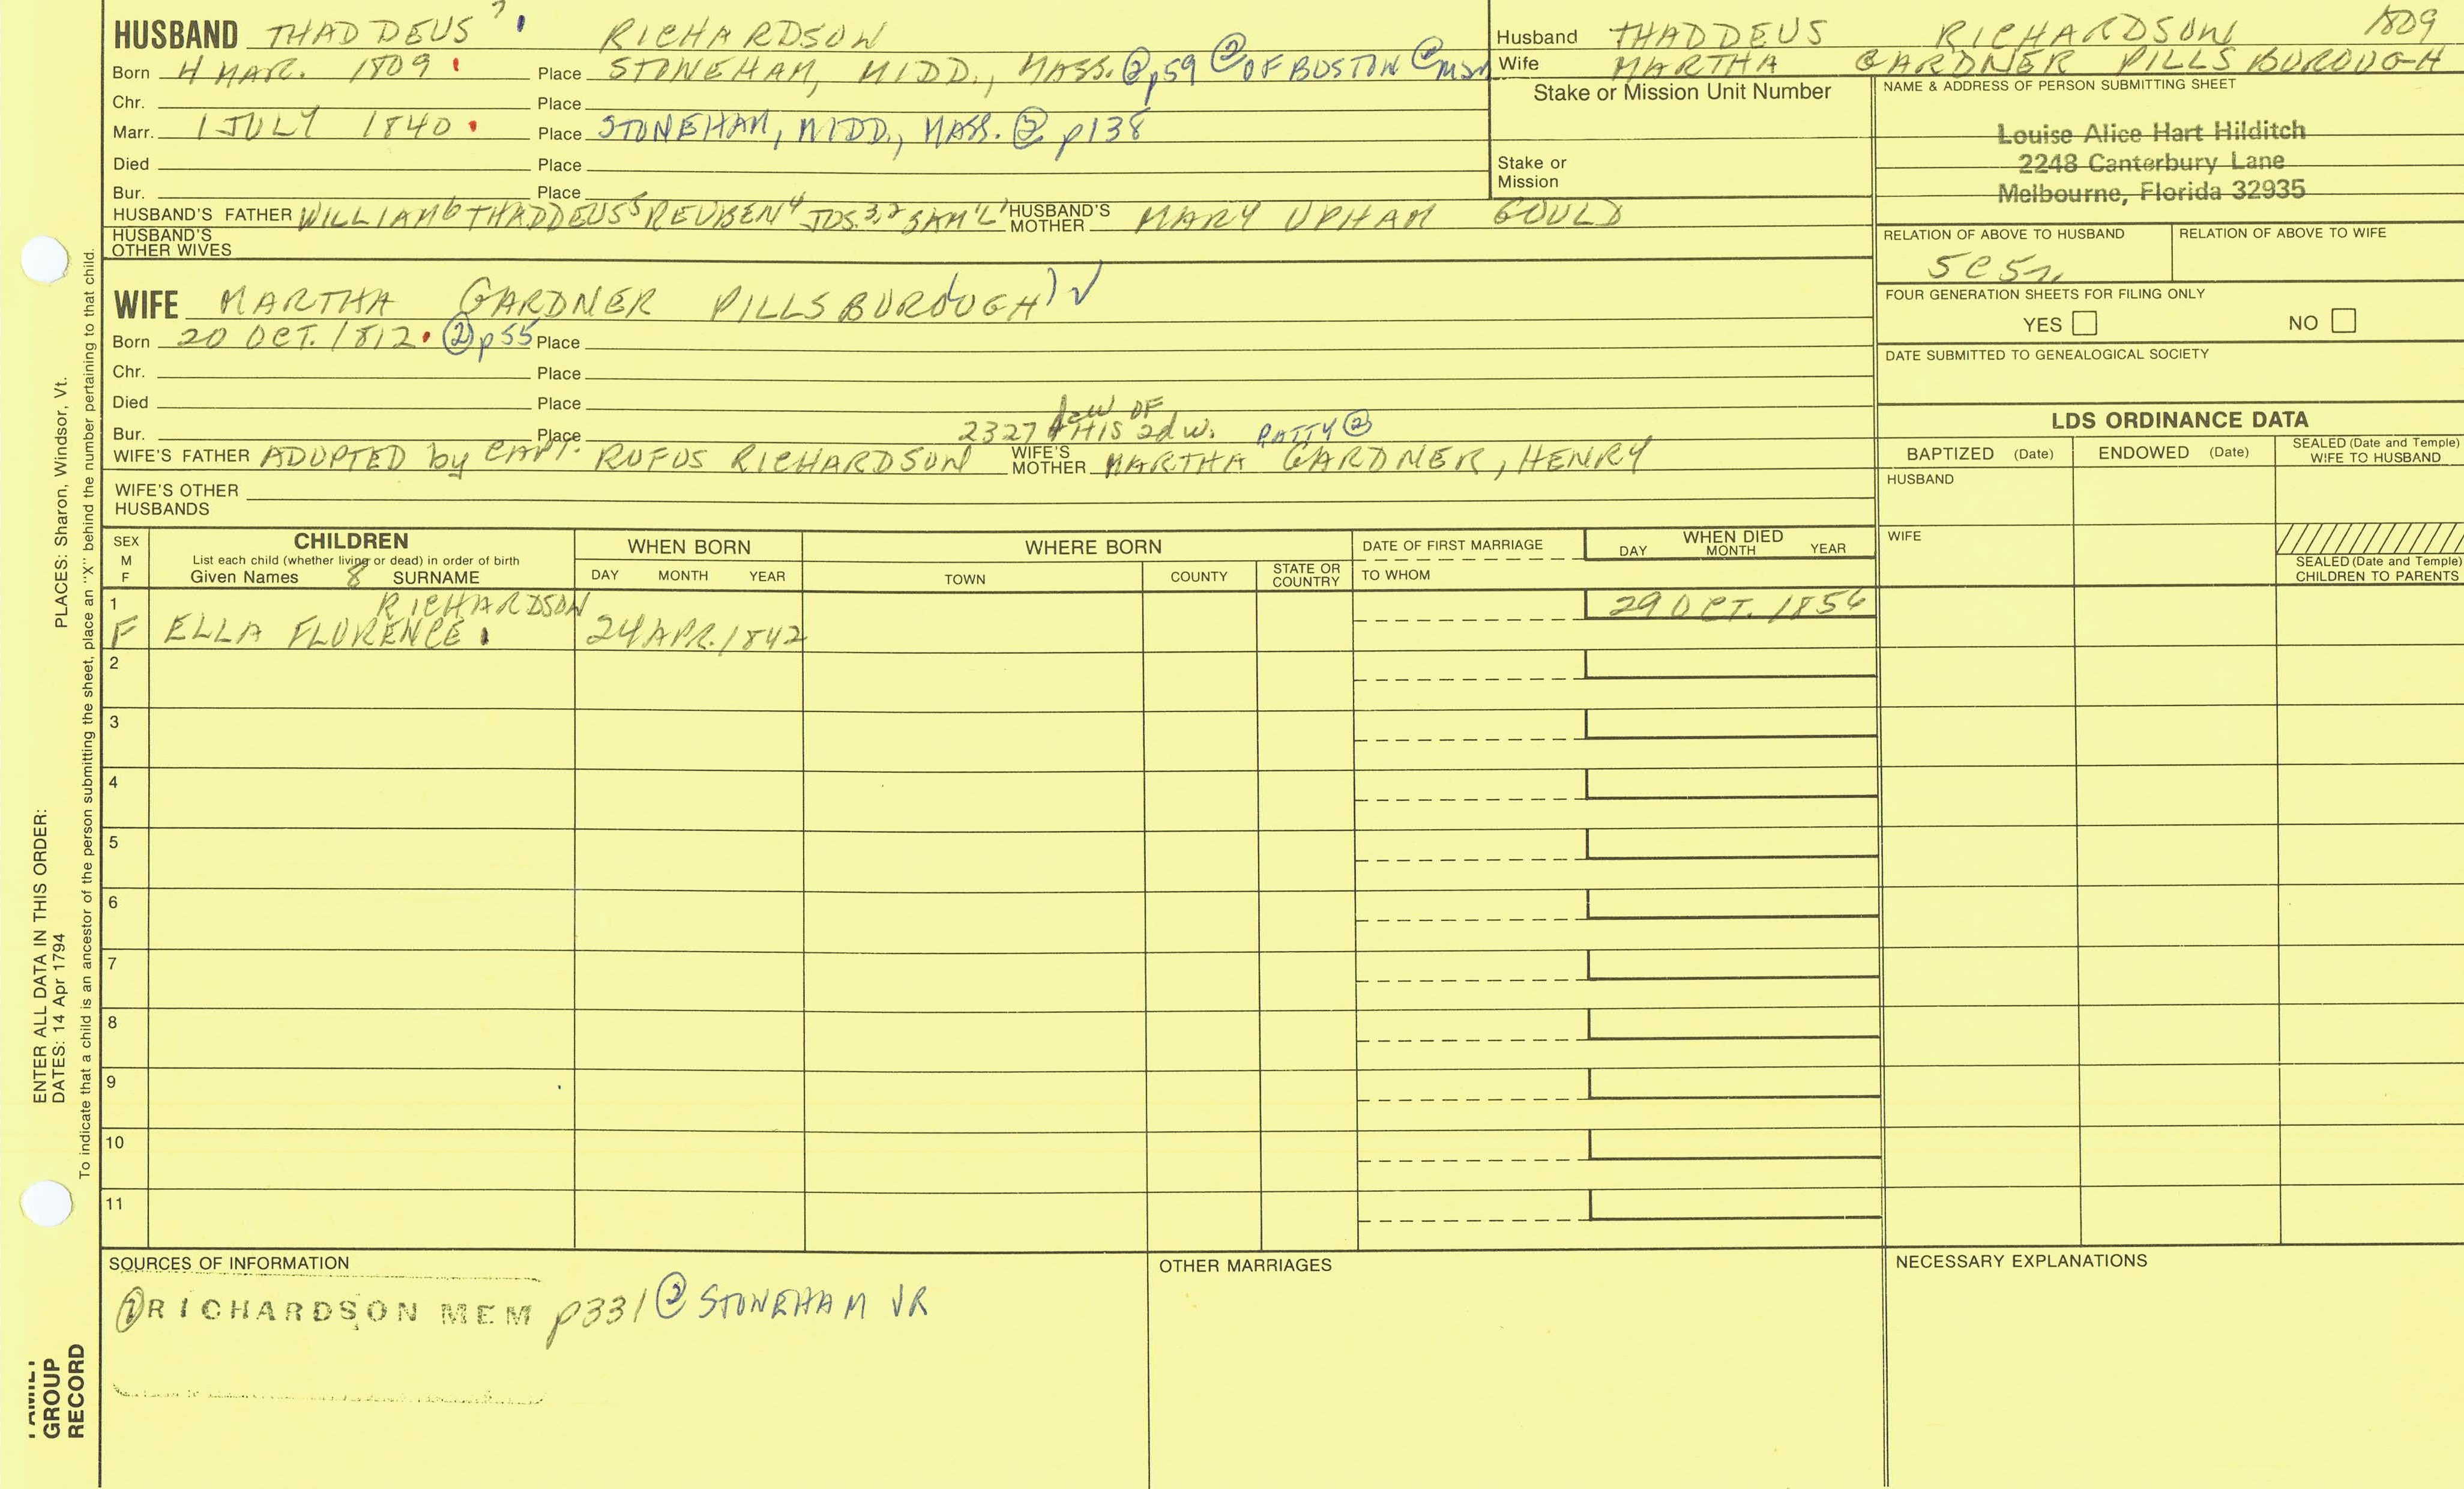 HUSBAND THADDEUS 7 RICHARDSON
Born 4 MAR. 1809 Place STONEHAM, MIDD., MASS. ② p59 ② OF BOSTON @
Chr. Place
Marr. 1 JULY 1840 Place STONEHAM, MIDD., MASS. ② p138
Died Place
Bur. Place
HUSBAND'S FATHER WILLIAM6 THADDEUS5 REUBEN4 JOS.3,2 SAM'L1 HUSBAND'S MOTHER MARY UPHAM GOULD
HUSBAND'S OTHER WIVES
WIFE MARTHA GARDNER PILLSBUROUGH
Born 20 OCT. 1812 ② p55 Place
Chr. Place
Died Place
Bur. Place 2327 HIS 2d w. PATTY ②
WIFE'S FATHER ADOPTED by CAPT. RUFUS RICHARDSON WIFE'S MOTHER MARTHA GARDNER, HENRY
WIFE'S OTHER HUSBANDS
Husband THADDEUS RICHARDSON 1809
Wife MARTHA GARDNER PILLSBUROUGH
Stake or Mission Unit Number
Stake or Mission
NAME & ADDRESS OF PERSON SUBMITTING SHEET
Louise Alice Hart Hilditch
2248 Canterbury Lane
Melbourne, Florida 32935
RELATION OF ABOVE TO HUSBAND RELATION OF ABOVE TO WIFE
5C5r
FOUR GENERATION SHEETS FOR FILING ONLY
YES NO
DATE SUBMITTED TO GENEALOGICAL SOCIETY
LDS ORDINANCE DATA
BAPTIZED (Date) ENDOWED (Date) SEALED (Date and Temple) WIFE TO HUSBAND
HUSBAND
WIFE
SEALED (Date and Temple) CHILDREN TO PARENTS
SEX M F
CHILDREN
List each child (whether living or dead) in order of birth
Given Names 8 SURNAME
WHEN BORN
DAY MONTH YEAR
WHERE BORN
TOWN COUNTY STATE OR COUNTRY
DATE OF FIRST MARRIAGE
TO WHOM
WHEN DIED
DAY MONTH YEAR
1 RICHARDSON 29 OCT. 1856
F ELLA FLORENCE 24 APR. 1842
2
3
4
5
6
7
8
9
10
11
SOURCES OF INFORMATION
① RICHARDSON MEM p331 ② STONEHAM VR
OTHER MARRIAGES
NECESSARY EXPLANATIONS
ENTER ALL DATA IN THIS ORDER:
DATES: 14 Apr 1794 PLACES: Sharon, Windsor, Vt.
To indicate that a child is an ancestor of the person submitting the sheet, place an "X" behind the number pertaining to that child.
FAMILY GROUP RECORD